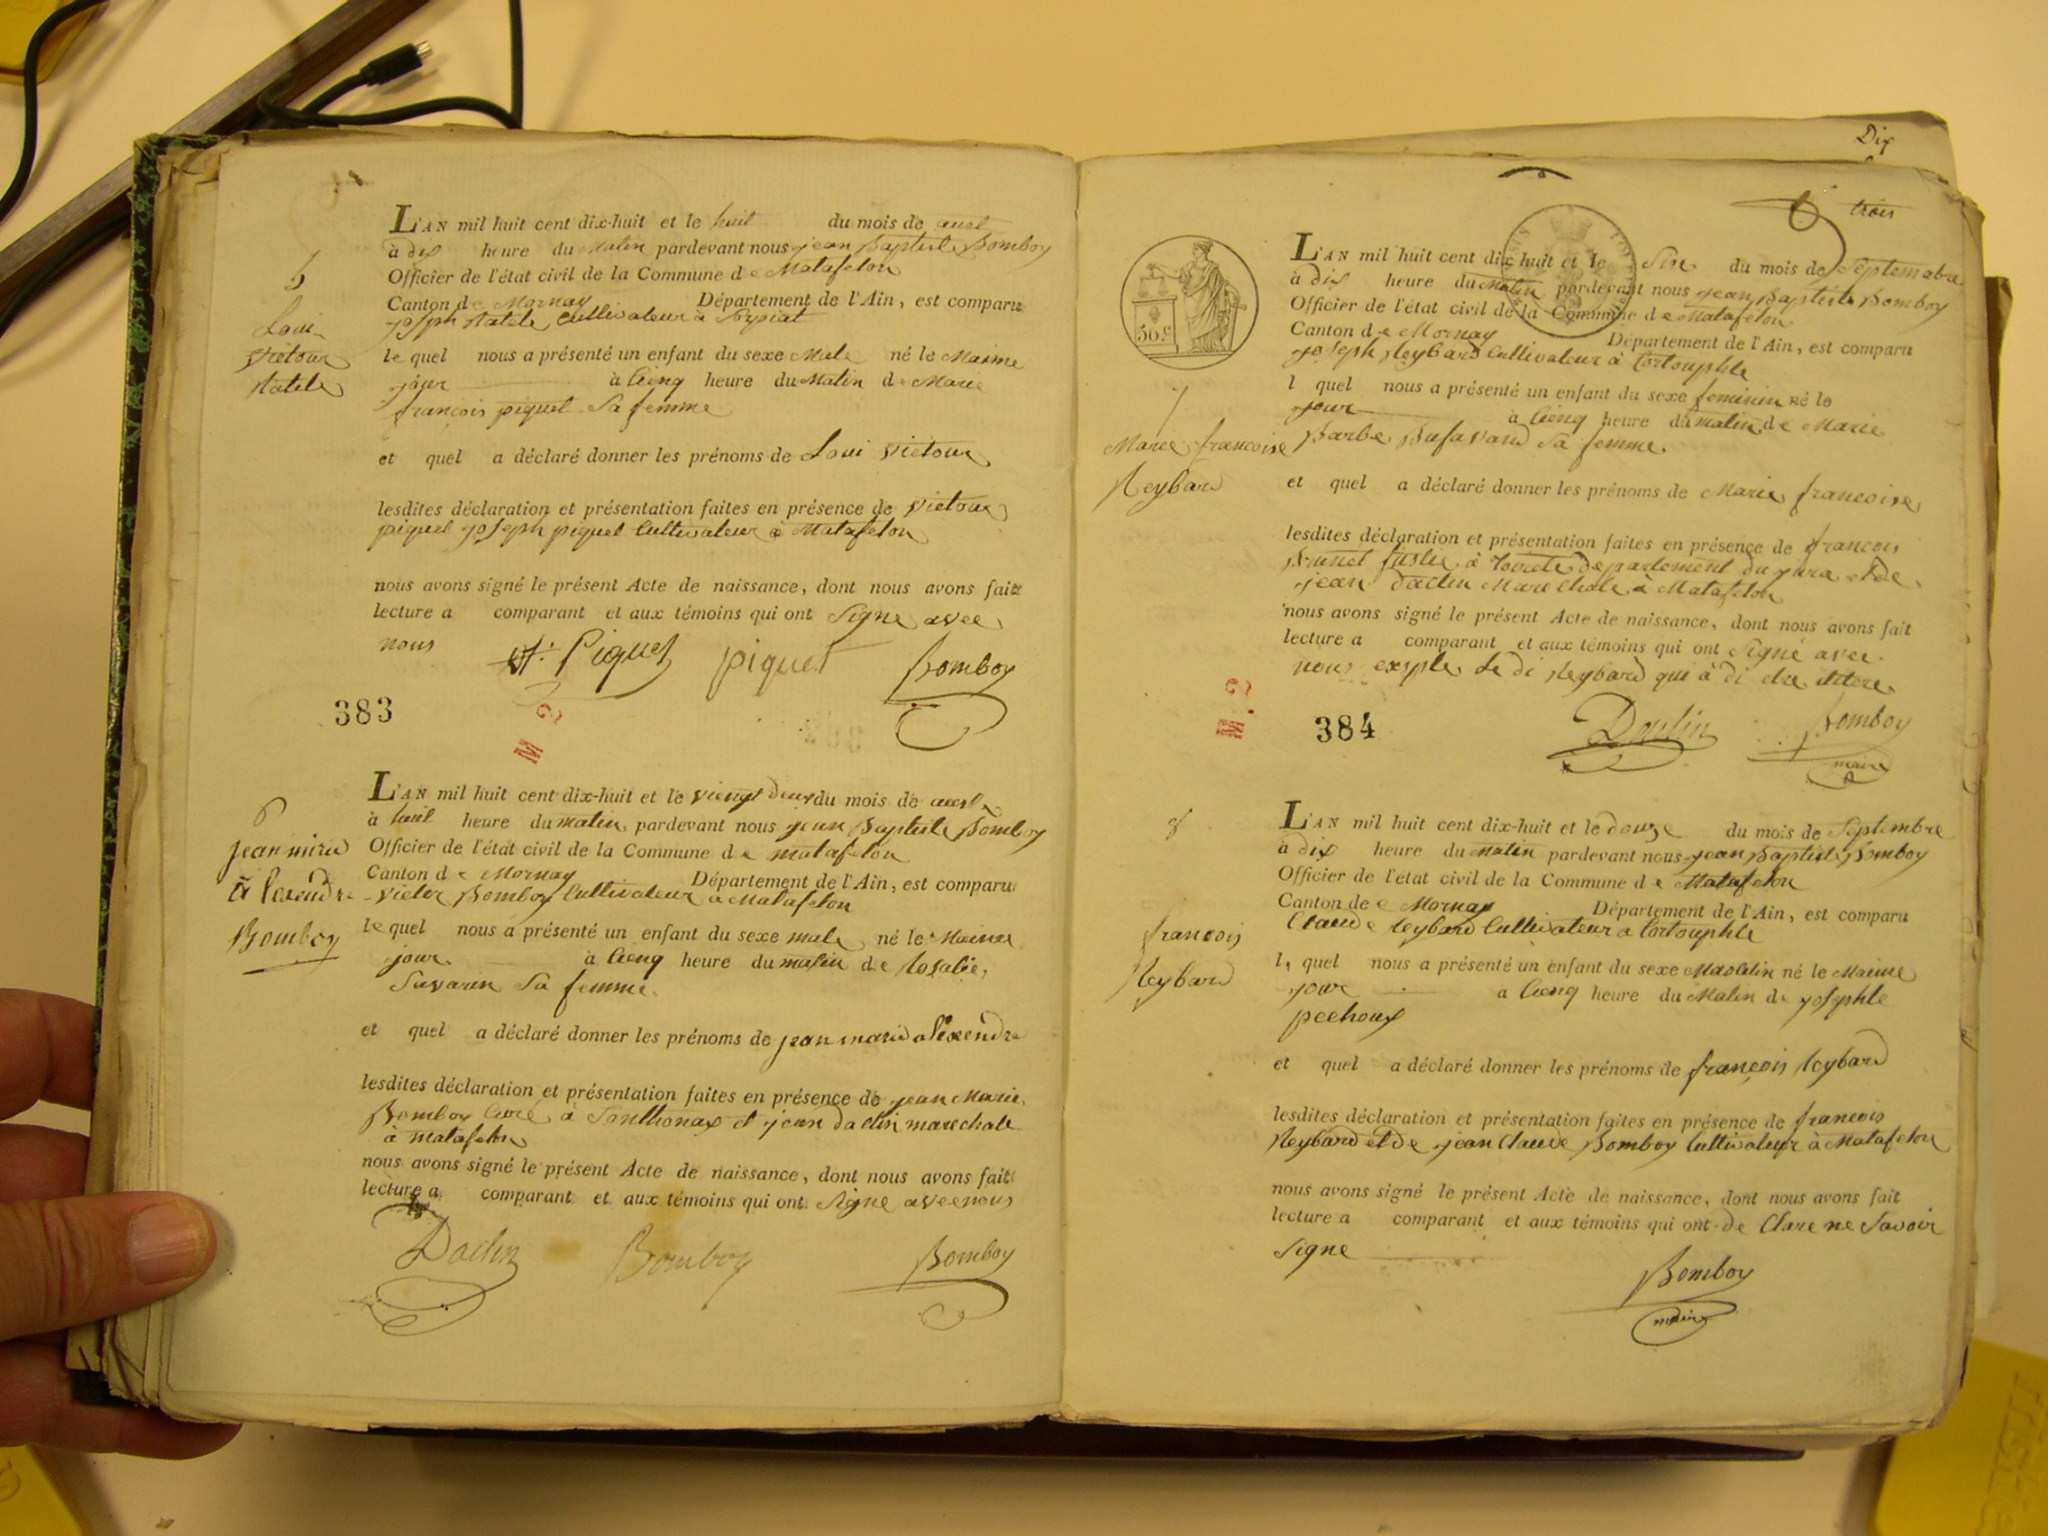 5
Loui
victour
Natele
L'AN mil huit cent dix-huit et le huit du mois de aust
à dix heure du Matin pardevant nous jean Baptiste Bomboy
Officier de l'état civil de la Commune de Matafelon
Canton de Mornay Département de l'Ain, est comparu
joseph Natele Cultivateur à
le quel nous a présenté un enfant du sexe Male né le Maime
jour à Cienq heure du Matin de Marie
françois piquet Sa femme
et quel a déclaré donner les prénoms de Loui victour
lesdites déclaration et présentation faites en présence de victour
piquet joseph piquet Cultivateur à Matafelon
nous avons signé le présent Acte de naissance, dont nous avons fait
lecture a comparant et aux témoins qui ont Signe avec
nous
Piquet piquet Bomboy
383
6
jean
Bomboy
L'AN mil huit cent dix-huit et le viengt deux du mois de aust
à huit heure du matin pardevant nous jean Baptiste Bomboy
Officier de l'état civil de la Commune de matafelon
Canton de Mornay Département de l'Ain, est comparu
victor Bomboy Cultivateur a Matafelon
le quel nous a présenté un enfant du sexe male né le Maime
jour à Cienq heure du matin de Rosalie
Savarin Sa femme
et quel a déclaré donner les prénoms de jean marie alexendre
lesdites déclaration et présentation faites en présence de jean Marie
Bomboy Curé à Sonthonax et jean daclin marechale
à matafelon
nous avons signé le présent Acte de naissance, dont nous avons fait
lecture a comparant et aux témoins qui ont Signe avec nous
Daclin Bomboy Bomboy
Dix
trois
50 c
7
Marie francoise
Reybard
L'AN mil huit cent dix-huit et le Sin du mois de Septembre
à dix heure du Matin pardevant nous jean Baptiste Bomboy
Officier de l'état civil de la Commune de Matafelon
Canton de Mornay Département de l'Ain, est comparu
joseph Reybard Cultivateur à Cortouphle
l quel nous a présenté un enfant du sexe feminin né le
jour à Cienq heure du matin de Marie
Barbe Bufavand Sa femme
et quel a déclaré donner les prénoms de Marie francoise
lesdites déclaration et présentation faites en présence de francois
Brunet à departement du jura et de
jean daclin Marechale à Matafelon
nous avons signé le présent Acte de naissance, dont nous avons fait
lecture a comparant et aux témoins qui ont Signé avec
nous exeple le di Reybard qui à di
384
Daclin Bomboy
maire
8
francois
Reybard
L'AN mil huit cent dix-huit et le douze du mois de Septembre
à dix heure du Matin pardevant nous jean Baptiste Bomboy
Officier de l'état civil de la Commune de Matafelon
Canton de Mornay Département de l'Ain, est comparu
Claude Reybard Cultivateur a Cortouphle
l, quel nous a présenté un enfant du sexe né le Maime
jour à Cienq heure du Matin de josephte
pechoux
et quel a déclaré donner les prénoms de françois Reybard
lesdites déclaration et présentation faites en présence de francois
Reybard et de jean Claude Bomboy Cultivateur à Matafelon
nous avons signé le présent Acte de naissance, dont nous avons fait
lecture a comparant et aux témoins qui ont de Clare ne Savoir
Signe
Bomboy
maire